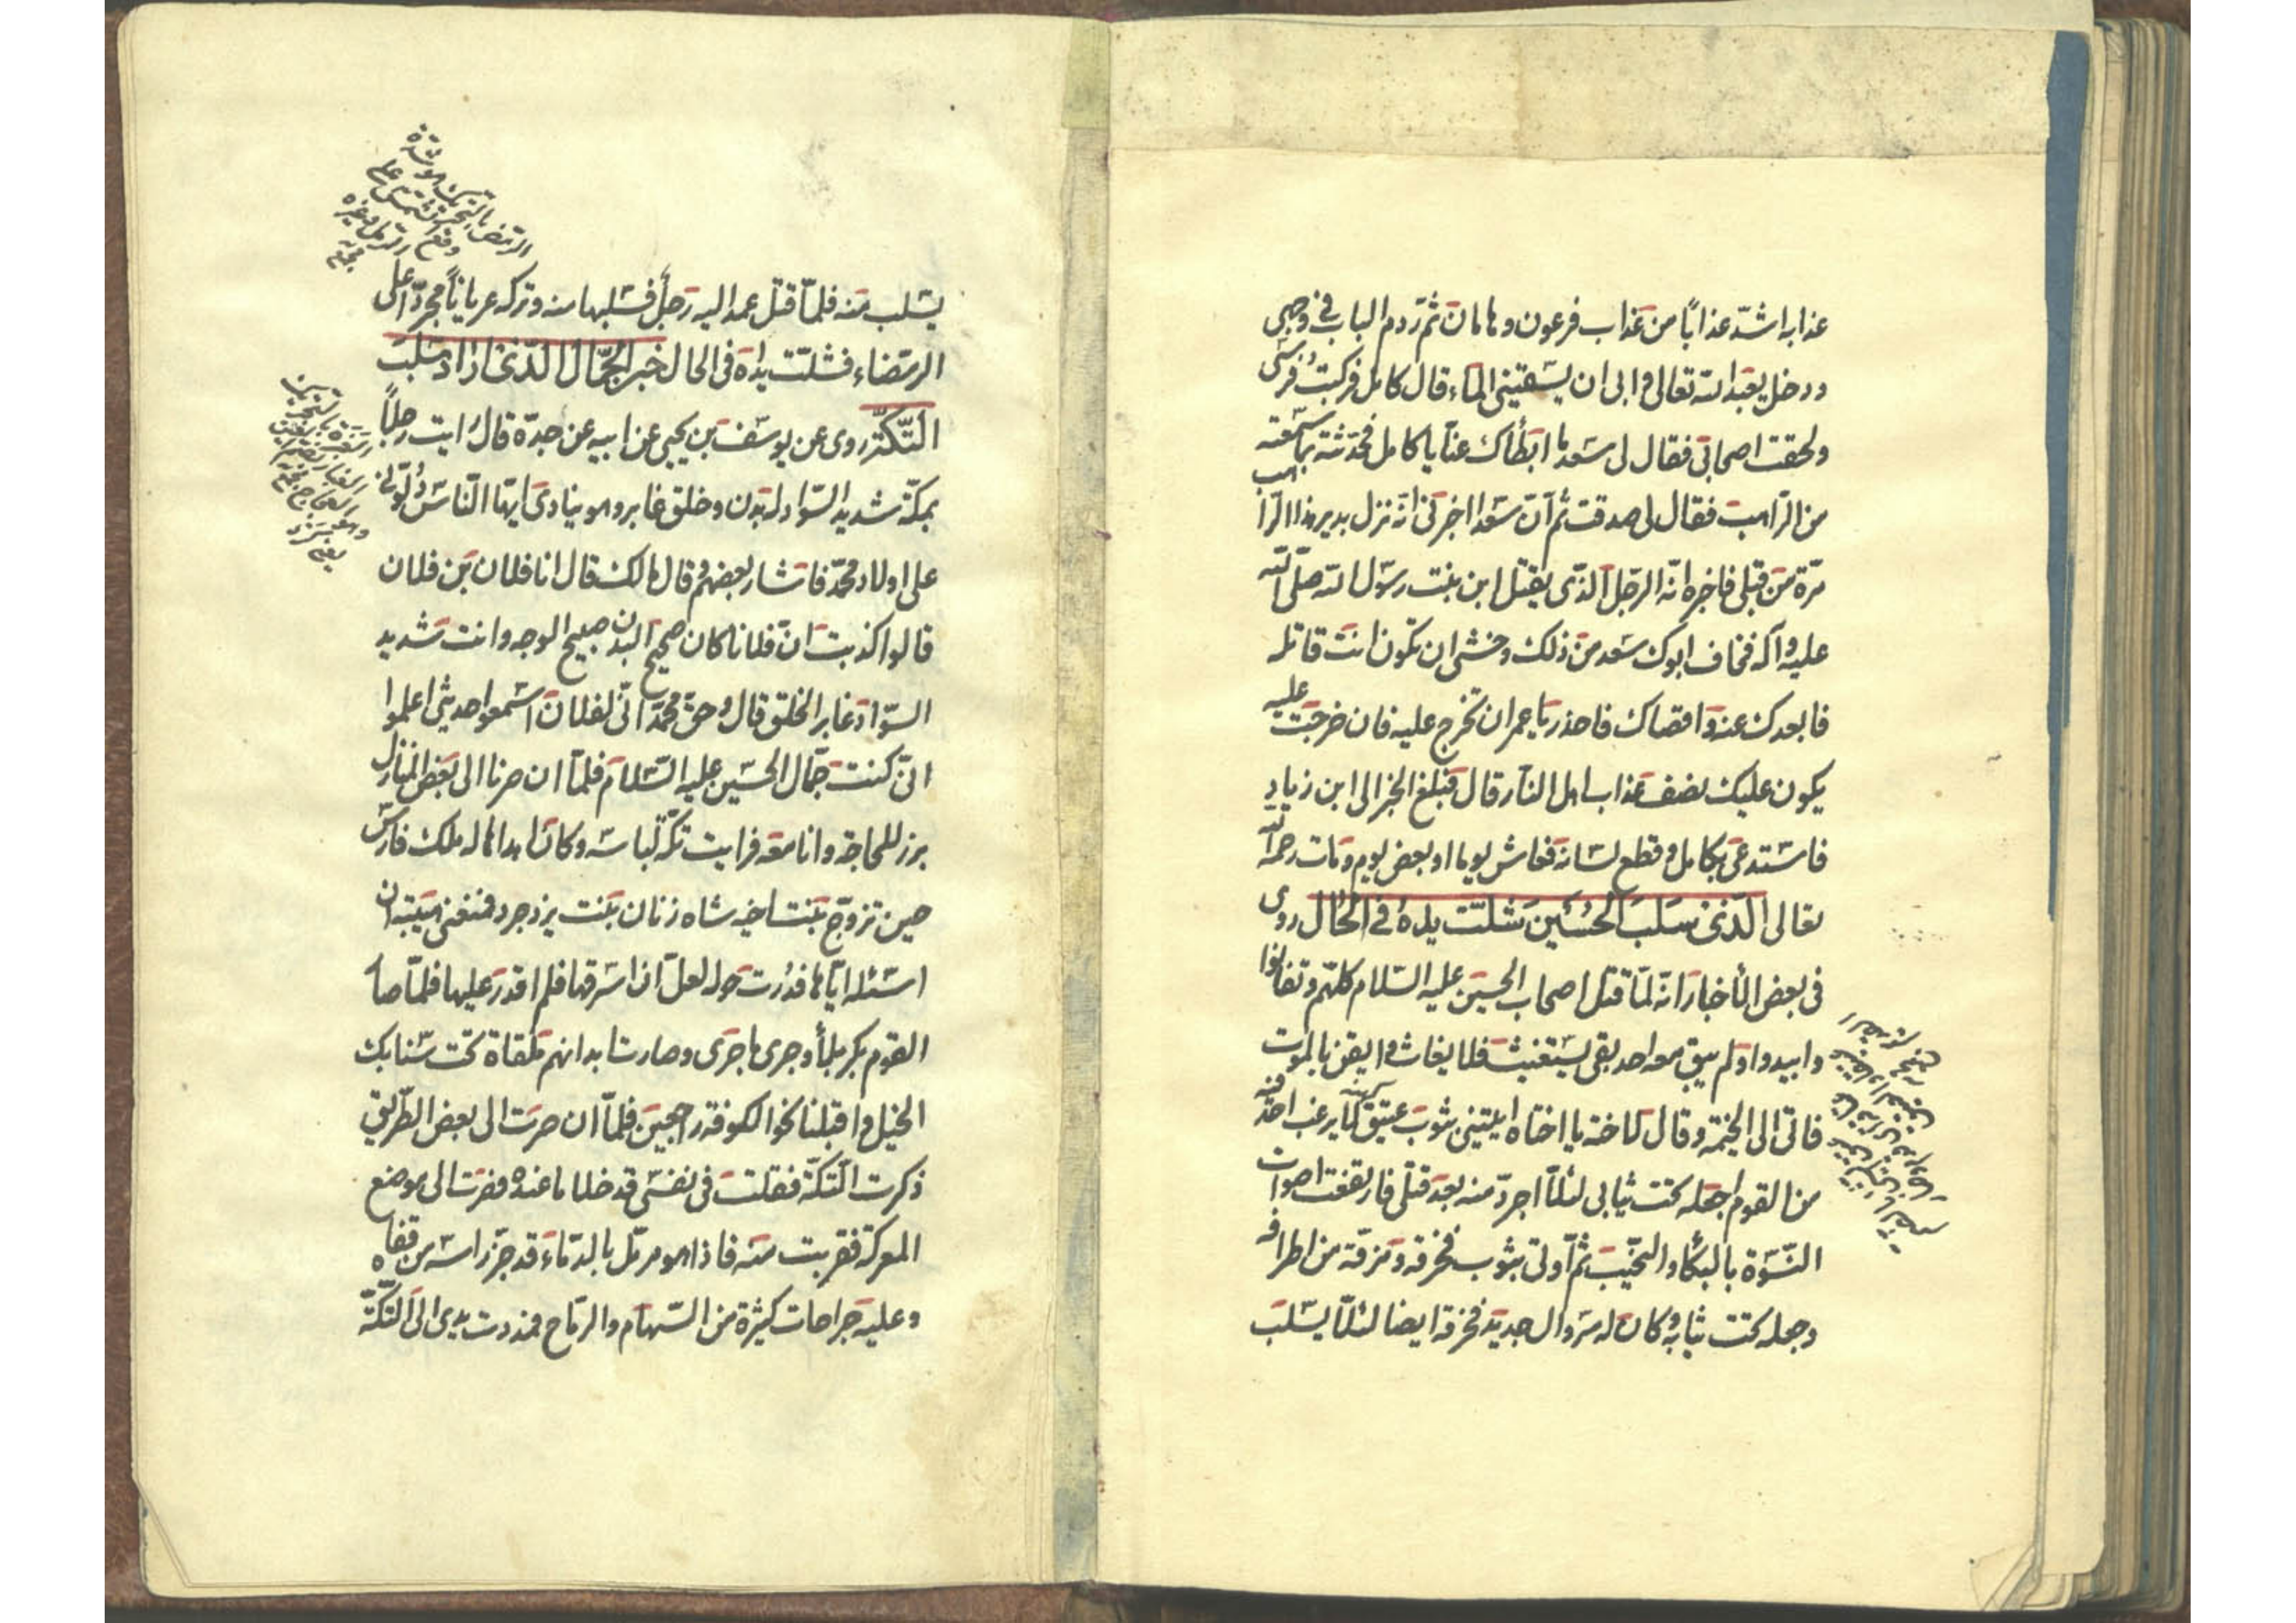 عذابه اشدّ عذاباً من عذاب فرعون وهامان ثمّ ردم الباب في وجهي
ودخل يعبد الله تعالى وابى ان يسقيني الماء قال كامل فركبت فرسى
ولحقت اصحابى فقال لى سعد ما ابطأك عنا يا كامل فحدّثته بما سمعته
من الراهب فقال لى صدقت ثم ان سعدا اخبرنى انه نزل بدير هذا الراهب
مرّة من قبلى فاخبره انّه الرجل الذى يقتل ابن بنت رسول الله صلى الله
عليه وآله فخاف ابوك سعد من ذلك وخشى ان تكون انت قاتله
فابعدك عنه واقصاك فاحذر يا عمر ان تخرج عليه فان خرجت عليه
يكون عليك نصف عذاب اهل النار قال فبلغ الخبر الى ابن زياد
فاستدعى بكامل وقطع لسانه فعاش يوما او بعض يوم ومات رحمه الله
تعالى الّذى سلب الحسين شلّت يداه في الحال روى
فى بعض الأخبار انّه لمّا قتل اصحاب الحسين عليه السلام كلهم وتفانوا
وابيدوا ولم يبق معه احد بقى يستغيث فلا يغاث وايقن بالموت
فاتى الى الخيمة وقال لاخته يا اختاه ايتينى بثوب عتيق لا يرغب احد فيه
من القوم اجعله تحت ثيابى لئلّا اجرد منه بعد قتلى فارتفعت اصوات
النسوة بالبكاء والنحيب ثم اوتى بثوب فخرقه ومزقه من اطرافه
وجعله تحت ثيابه وكان له سروال جديد فخرقه ايضا لئلّا يسلب
يسلب منه فلمّا قتل عمد اليه رجل فسلبها منه وتركه عرياناً مجرّدا على
الرمضاء فشلّت يداه فى الحال خبر الجمّال الّذى اراد سلب
التكّة روى عن يوسف بن يحيى عن ابيه عن جده قال رايت رجلاً
بمكّة شديد السّواد له بدن وخلق غابر وهو ينادى ايها الناس دلّونى
على اولاد محمّد فاشار بعضهم وقال مالك قال انا فلان بن فلان
قالوا كذبت انّ فلانا كان صحيح البدن صبيح الوجه وانت شديد
السواد غابر الخلق قال وحق محمّد انّى لفلان اسمعوا حديثى اعلموا
انّى كنت جمّال الحسين عليه السّلام فلمّا ان صرنا الى بعض المنازل
برز للحاجة وانا معه فرايت تكّة لباسه وكان اهداها له ملك فارس
حين تزوّج بنت اخيه شاه زنان بنت يزدجرد فمنعنى هيبته ان
اسئله ايّاها فدرت حوله لعلّ ان اسرقها فلم اقدر عليها فلمّا صار
القوم بكربلا وجرى ما جرى وصارت ابدانهم ملقاة تحت سنابك
الخيل واقبلنا نحو الكوفة راجعين فلمّا ان صرت الى بعض الطريق
ذكرت التكّة فقلت فى نفسى قد خلا ما عنده فصرت الى موضع
المعركة فقربت منه فاذا هو مرمّل بالدماء قد جزّ راسه من قفاه
وعليه جراحات كثيرة من السّهام والرماح فمددت يدى الى التكّة